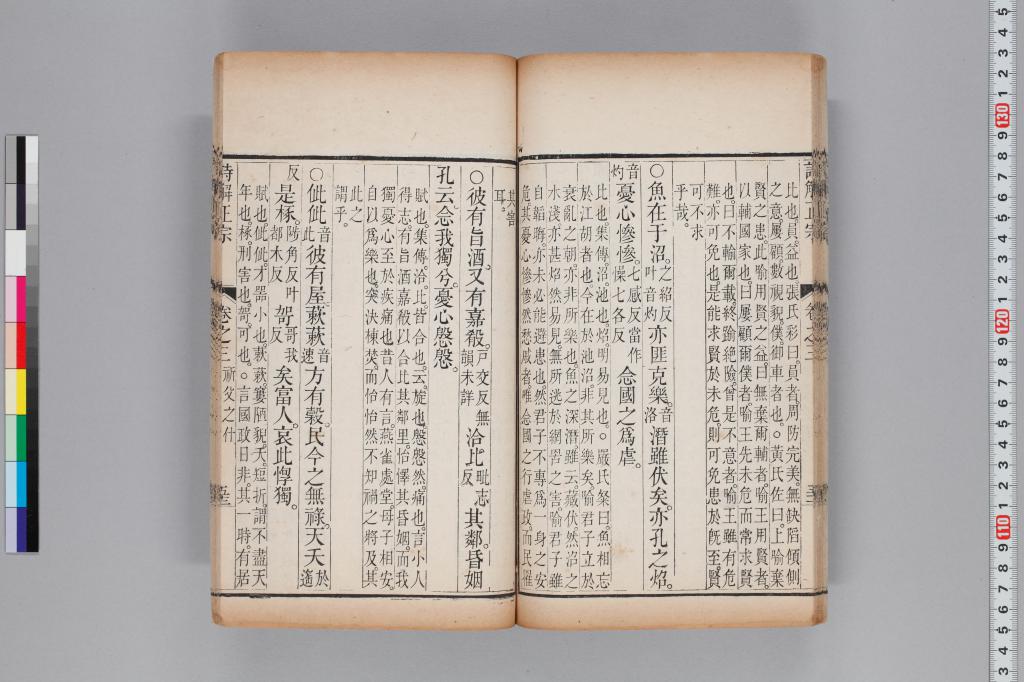 比也。員。益也。張氏彩曰。員者。周防完美。無缺陷傾側
之意。屢。顧。數視貌。僕。御車者也。○黃氏佐曰。上喻棄
賢之患。此喻用賢之益。曰無棄爾輔者。喻王用賢者。
以輔國家也。曰屢顧爾僕者。喻王先未危而常求賢
也。曰不輸爾載。終踰絕險。曾是不意者。喻王雖有危
難。亦可免也。是能求賢於未危。則可免患於既至。賢
可不求
乎哉。
○魚在于沼。之紹反叶音灼亦匪克樂。音洛潛雖伏矣。亦孔之炤。
音灼憂心慘慘。七感反當作懆七各反念國之爲虐。
比也。集傳。沼。池也。炤。明易見也。○嚴氏粲曰。魚相忘
於江胡者也。今在於池沼。非其所樂矣。喻君子立於
衰亂之朝。亦非所樂也。魚之深潛。雖云藏伏。然沼之
水淺。亦甚炤然易見。無所逃於網罟之害。喻君子雖
自韜晦。亦未必能避患也。然君子不專爲一身之安
危。其憂心慘慘然愁戚者。唯念國之行虐政。而民罹
其害
耳。
○彼有旨酒。又有嘉殽。戶交反無韻未詳洽比毗志反其鄰。昏姻
孔云。念我獨兮。憂心慇慇。
賦也。集傳。洽。比。皆合也。云。旋也。慇慇然。痛也。言小人
得志。有旨酒嘉殽。以合比其鄰里。怡懌其昏姻。而我
獨憂心至於疾痛也。昔人有言。燕雀處堂。母子相安。
自以爲樂也。突決棟焚。而怡然不知禍之將及。其
此之
謂乎。
○佌佌音此彼有屋。蔌蔌音速方有榖。民今之無祿。天夭於遙
反是椓。陟角反叶都木反哿哥我反矣富人。哀此惸獨。
賦也。佌佌。才器小也。蔌蔌。窶陋貌。夭。短折。謂不盡天
年也。椓。刑害也。哿。可也。○言國政日非。其一時。有居
詩解正宗
卷之三
祈父之什